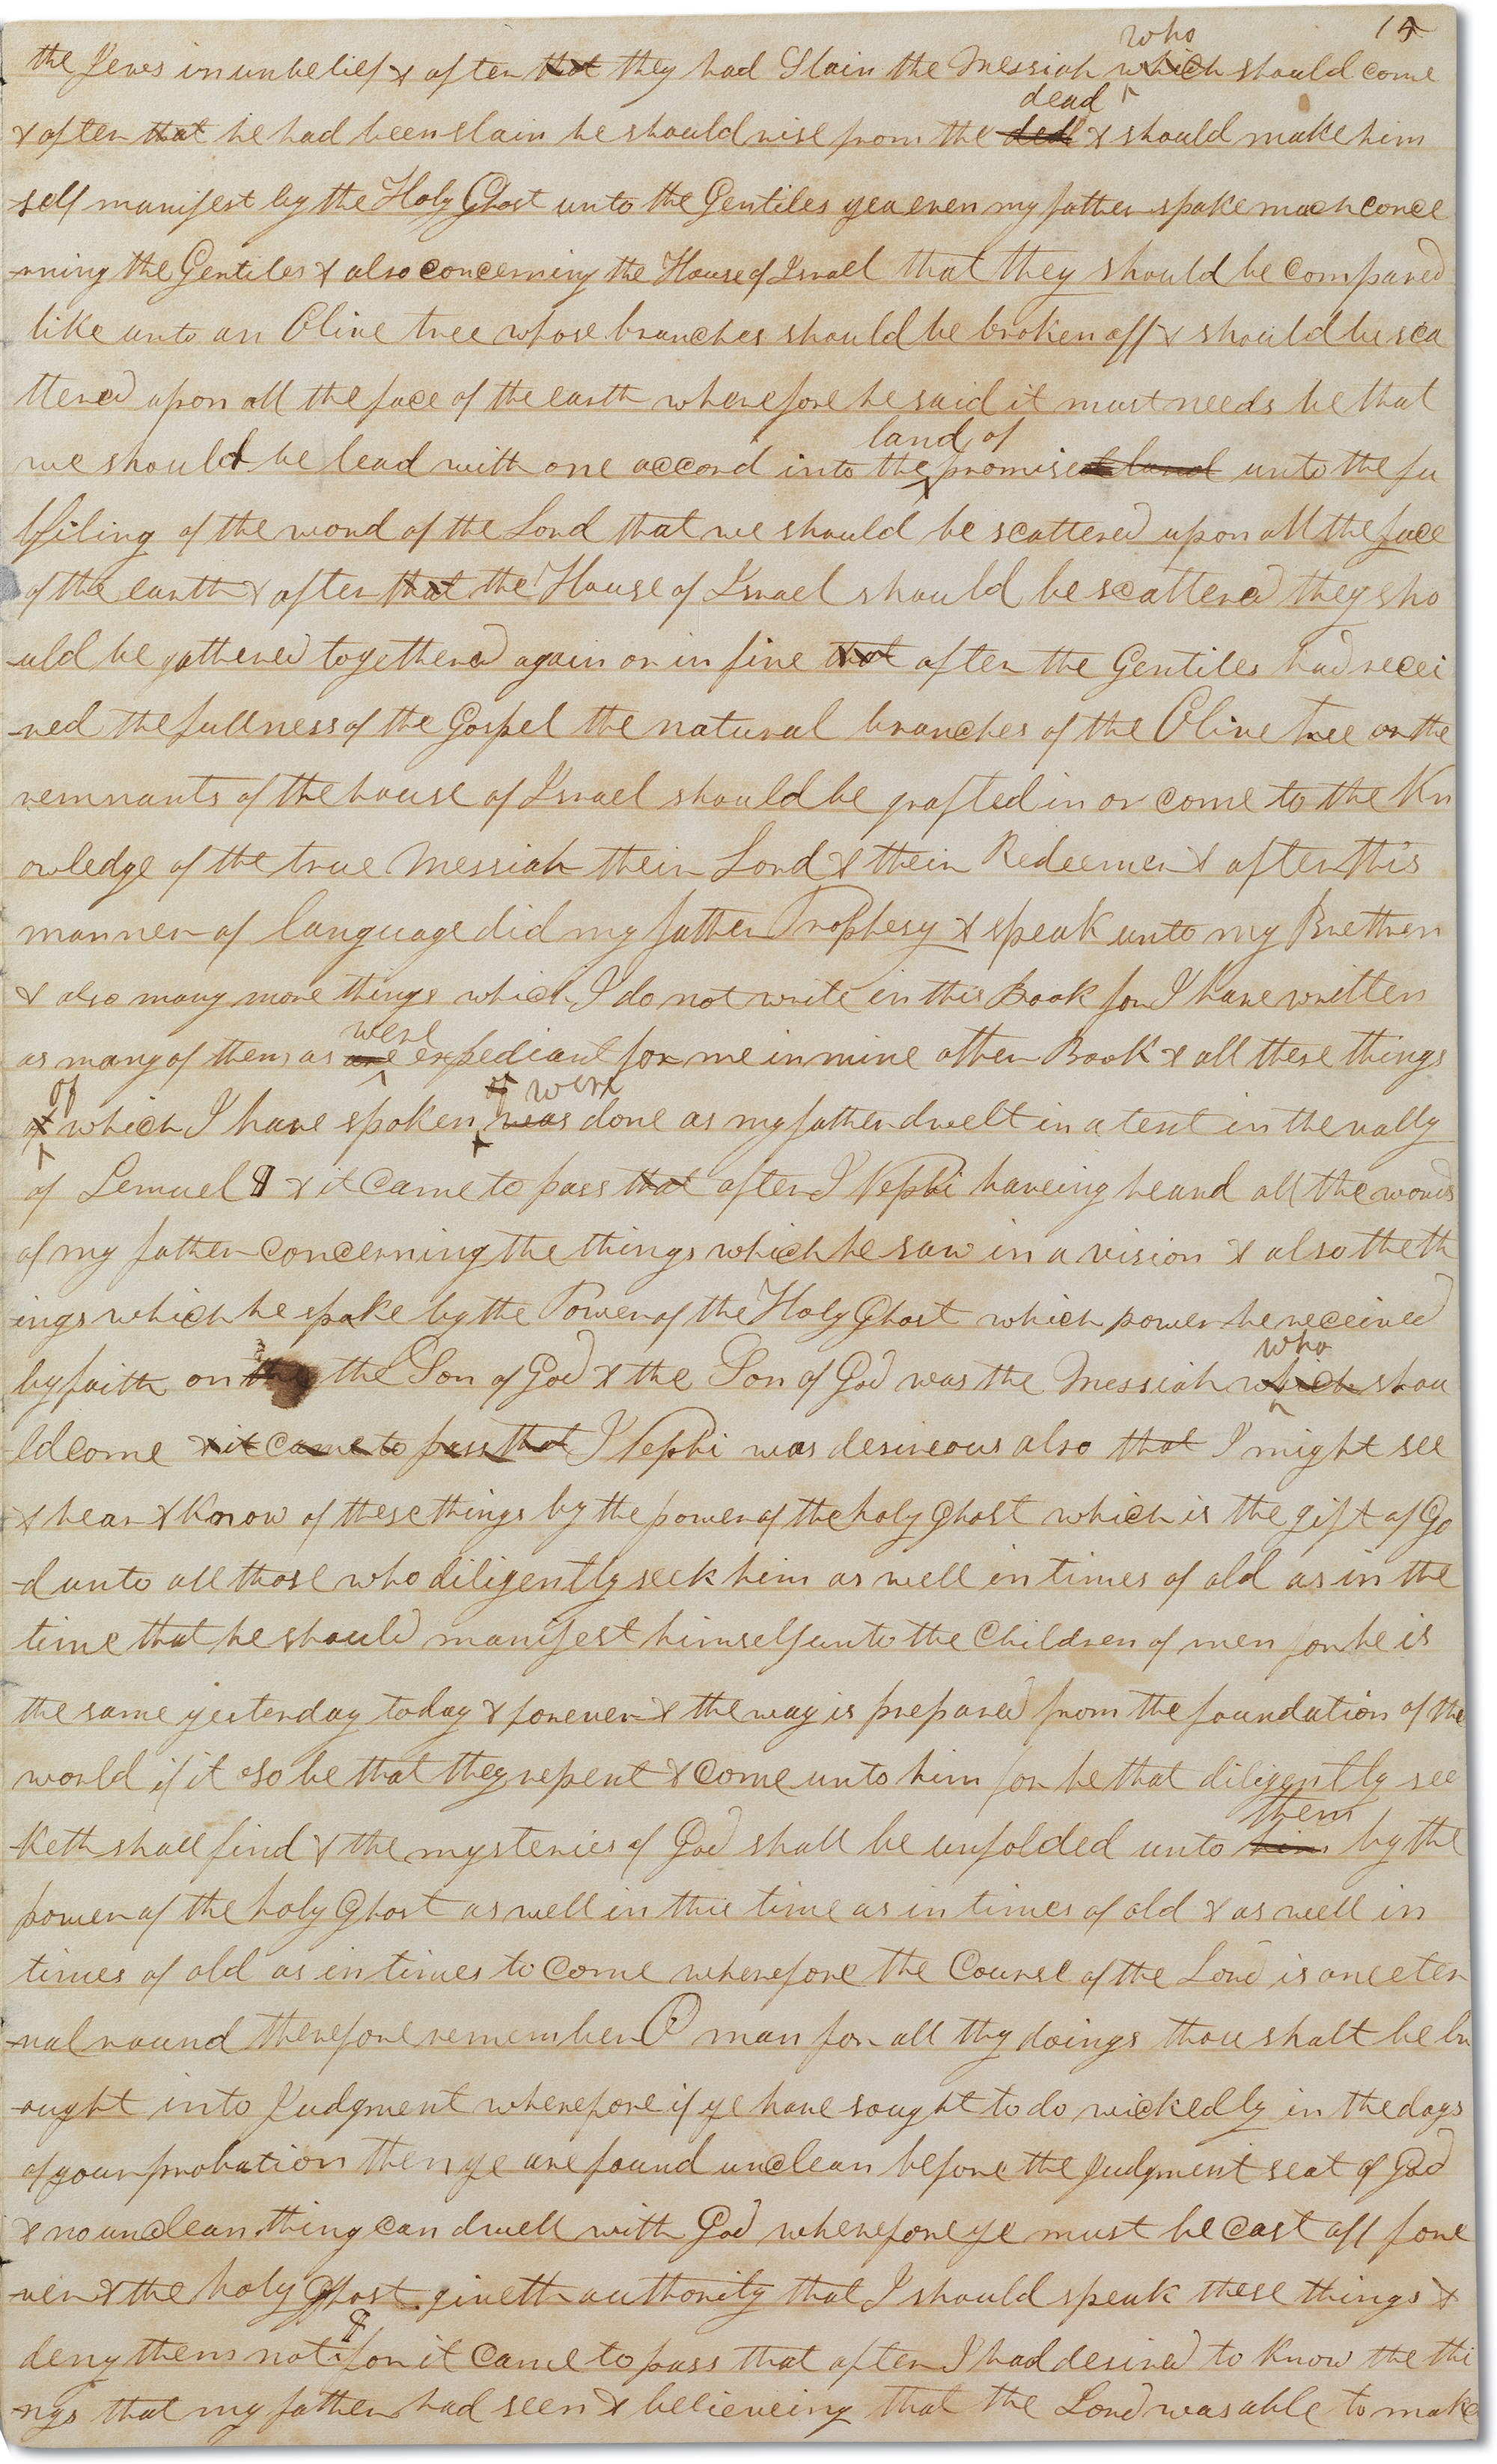 14
the Jews in unbelief & after that they had Slain the Messiah which who should come
& after that he had been slain he should rise from the ded dead & should make him
self manifest by the Holy Ghost unto the Gentiles yea even my father spake much conce
-rning the Gentiles & also concerning the House of Israel that they should be compared
like unto an Olive tree whose branches should be broken off & should be sca
ttered upon all the face of the earth wherefore he said it must needs be that
we should be lead with one accord into the land of promised land unto the fu
lfiling of the word of the Lord that we should be scattered upon all the face
of the earth & after that the House of Israel should be scattered they sho
-uld be gathered togethered again or in fine that after the Gentiles had recei
-ved the fullness of the Gospel the natural branches of the Olive tree or the
remnants of the house of Israel should be grafted in or come to the Kn
owledge of the true Messiah their Lord & their Redeemer & after this
manner of language did my father Prophesy & speak unto my Brethren
& also many more things which I do not write in this Book for I have written
as many of them as are were expediant for me in mine other Book & all these things
of of which I have spoken of was were done as my father dwelt in a tent in the vally
of Lemuel & it came to pass that after I Nephi haveing heard all the words
of my father concerning the things which he saw in a vision & also the th
ings which he spake by the Power of the Holy Ghost which power he received
by faith on the the Son of God & the Son of God was the Messiah which who shou
ld come & it came to pass that I Nephi was desireous also that I might see
& hear & Know of these things by the power of the holy Ghost which is the gift of Go
-d unto all those who diligently seek him as well in times of old as in the
time that he should manifest himself unto the Children of men for he is
the same yesterday today & forever & the way is prepared from the foundation of the
world if it so be that they repent & come unto him for he that diligently see
-Keth shall find & the mysteries of God shall be unfolded unto him them by the
power of the holy Ghost as well in this time as in times of old & as well in
times of old as in times to come wherefore the Course of the Lord is one eter
-nal round therefore remember O man for all thy doings thou shalt be br
-ought into Judgment wherefore if ye have sought to do wickedly in the days
of your probation then ye are found unclean before the Judgment seat of God
& no unclean thing can dwell with God wherefore ye must be cast off fore
-ver & the holy Ghost giveth authority that I should speak these things &
deny them not for it came to pass that after I had desired to know the thi
-ngs that my father had seen & believeing that the Lord was able to make